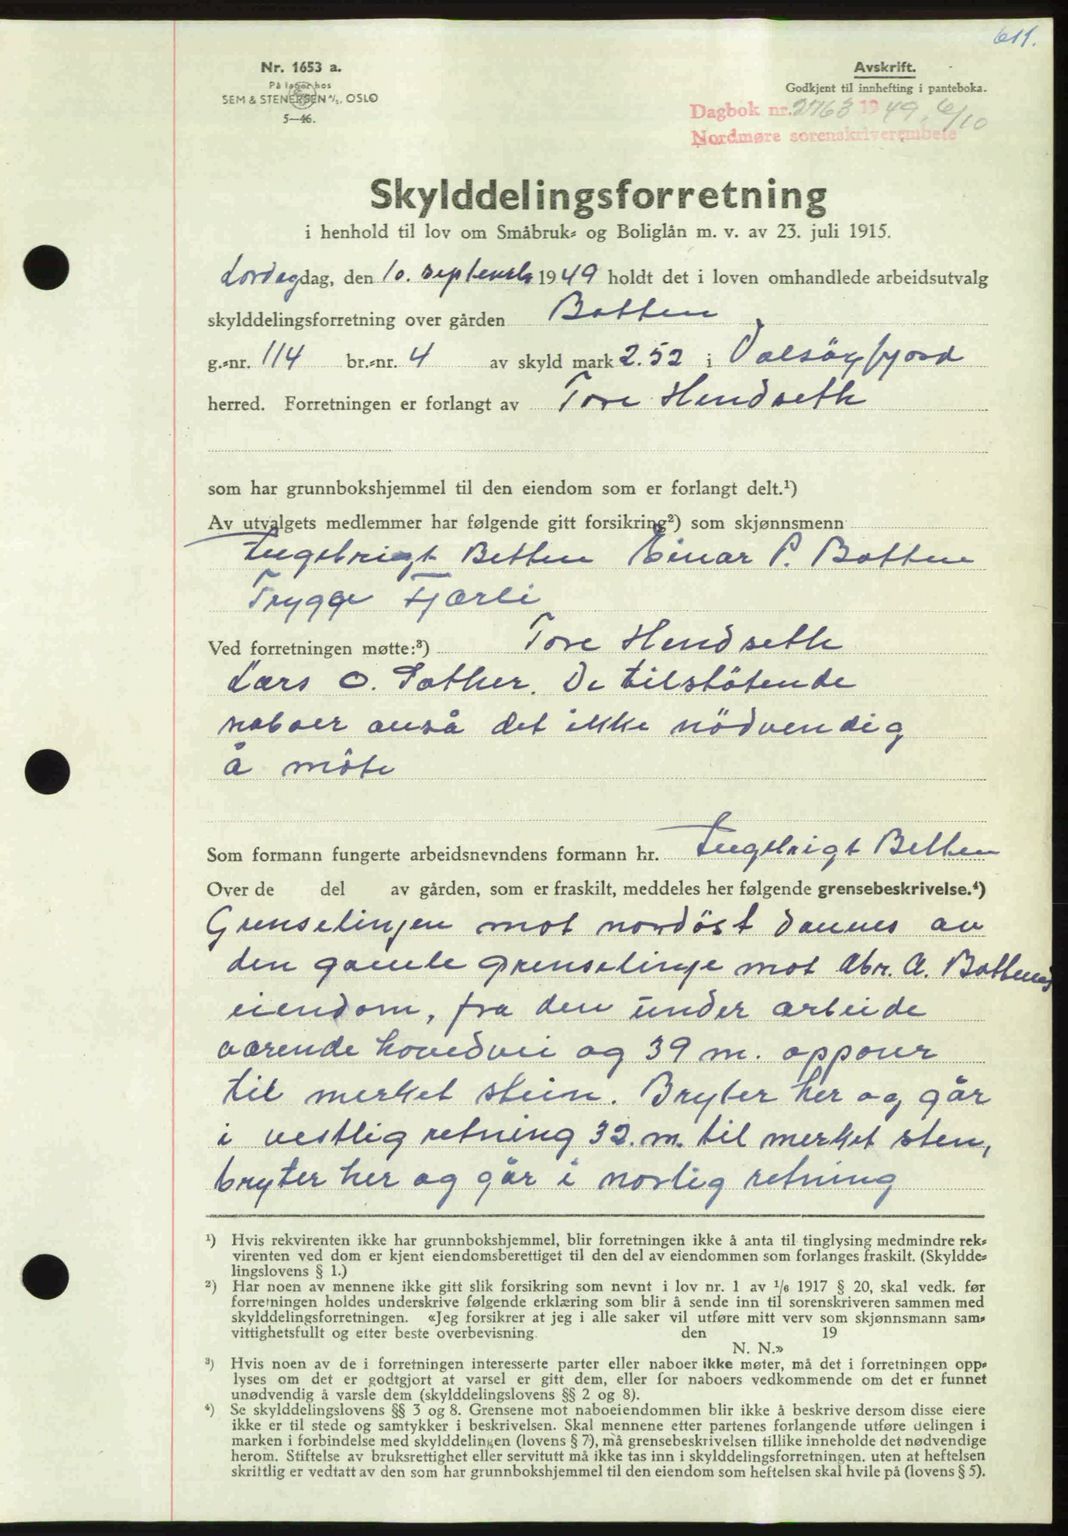 611.
Nr. 1653 a.
På lager hos
SEM & STENERSEN A/S, OSLO
5—46.
Avskrift.
Godkjent til innhefting i panteboka.
Dagbok nr. 2763 1949, 6/10
Nordmøre sorenskriverembete
Skylddelingsforretning
i henhold til lov om Småbruk- og Boliglån m. v. av 23. juli 1915.
Lørdag dag, den 10. september 1949 holdt det i loven omhandlede arbeidsutvalg
skylddelingsforretning over gården Botten
g.-nr. 114 br.-nr. 4 av skyld mark 2.52 i Valsöyfjord
herred. Forretningen er forlangt av Tore Hendseth
som har grunnbokshjemmel til den eiendom som er forlangt delt.¹)
Av utvalgets medlemmer har følgende gitt forsikring²) som skjønnsmenn
Ingebrigt Betten Einar P. Botten
Trygge Fjærli
Ved forretningen møtte:³) Tore Hendseth
Lars O. Sæther. De tilstötende
naboer anså det ikke nödvendig
å möte
Som formann fungerte arbeidsnevndens formann hr. Ingebrigt Betten
Over de del av gården, som er fraskilt, meddeles her følgende grensebeskrivelse.⁴)
Grenselinjen mot nordöst dannes av
den gamle grenselinje mot Abr. A. Bottens
eiendom, fra den under arbeide
værende hovedvei og 39 m. oppover
til merket stein. Bryter her og går
i vestlig retning 32. m. til merket sten,
bryter her og går i norlig retning
¹) Hvis rekvirenten ikke har grunnbokshjemmel, blir forretningen ikke å anta til tinglysing medmindre rek-
virenten ved dom er kjent eiendomsberettiget til den del av eiendommen som forlanges fraskilt. (Skyldde-
lingslovens § 1.)
²) Har noen av mennene ikke gitt slik forsikring som nevnt i lov nr. 1 av 1/6 1917 § 20, skal vedk. før
forretningen holdes underskrive følgende erklæring som blir å sende inn til sorenskriveren sammen med
skylddelingsforretningen. «Jeg forsikrer at jeg i alle saker vil utføre mitt verv som skjønnsmann sam-
vittighetsfullt og etter beste overbevisning den 19
N. N.»
³) Hvis noen av de i forretningen interesserte parter eller naboer ikke møter, må det i forretningen opp-
lyses om det er godtgjort at varsel er gitt dem, eller for naboers vedkommende om det er funnet
unødvendig å varsle dem (skylddelingslovens §§ 2 og 8).
⁴) Se skylddelingslovens §§ 3 og 8. Grensene mot naboeiendommen blir ikke å beskrive dersom disse eiere
ikke er til stede og samtykker i beskrivelsen. Skal mennene etter partenes forlangende utføre delingen i
marken i forbindelse med skylddelingen (lovens § 7), må grensebeskrivelsen tillike inneholde det nødvendige
herom. Stiftelse av bruksrettighet eller servitutt må ikke tas inn i skylddelingsforretningen, uten at heftelsen
skriftlig er vedtatt av den som har grunnbokshjemmel til den eiendom som heftelsen skal hvile på (lovens § 5).